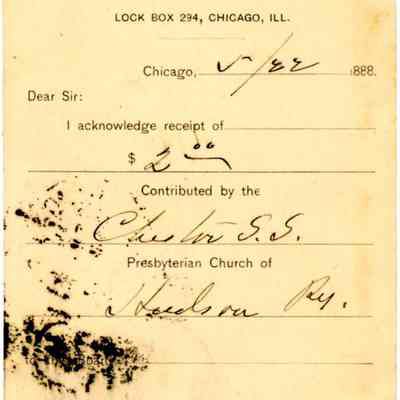 LOCK BOX 294, CHICAGO, ILL.
Chicago, 5/22 1888.
Dear Sir:
I acknowledge receipt of
$ 2 00
Contributed by the
Chester S. S.
Presbyterian Church of
Hudson Py.